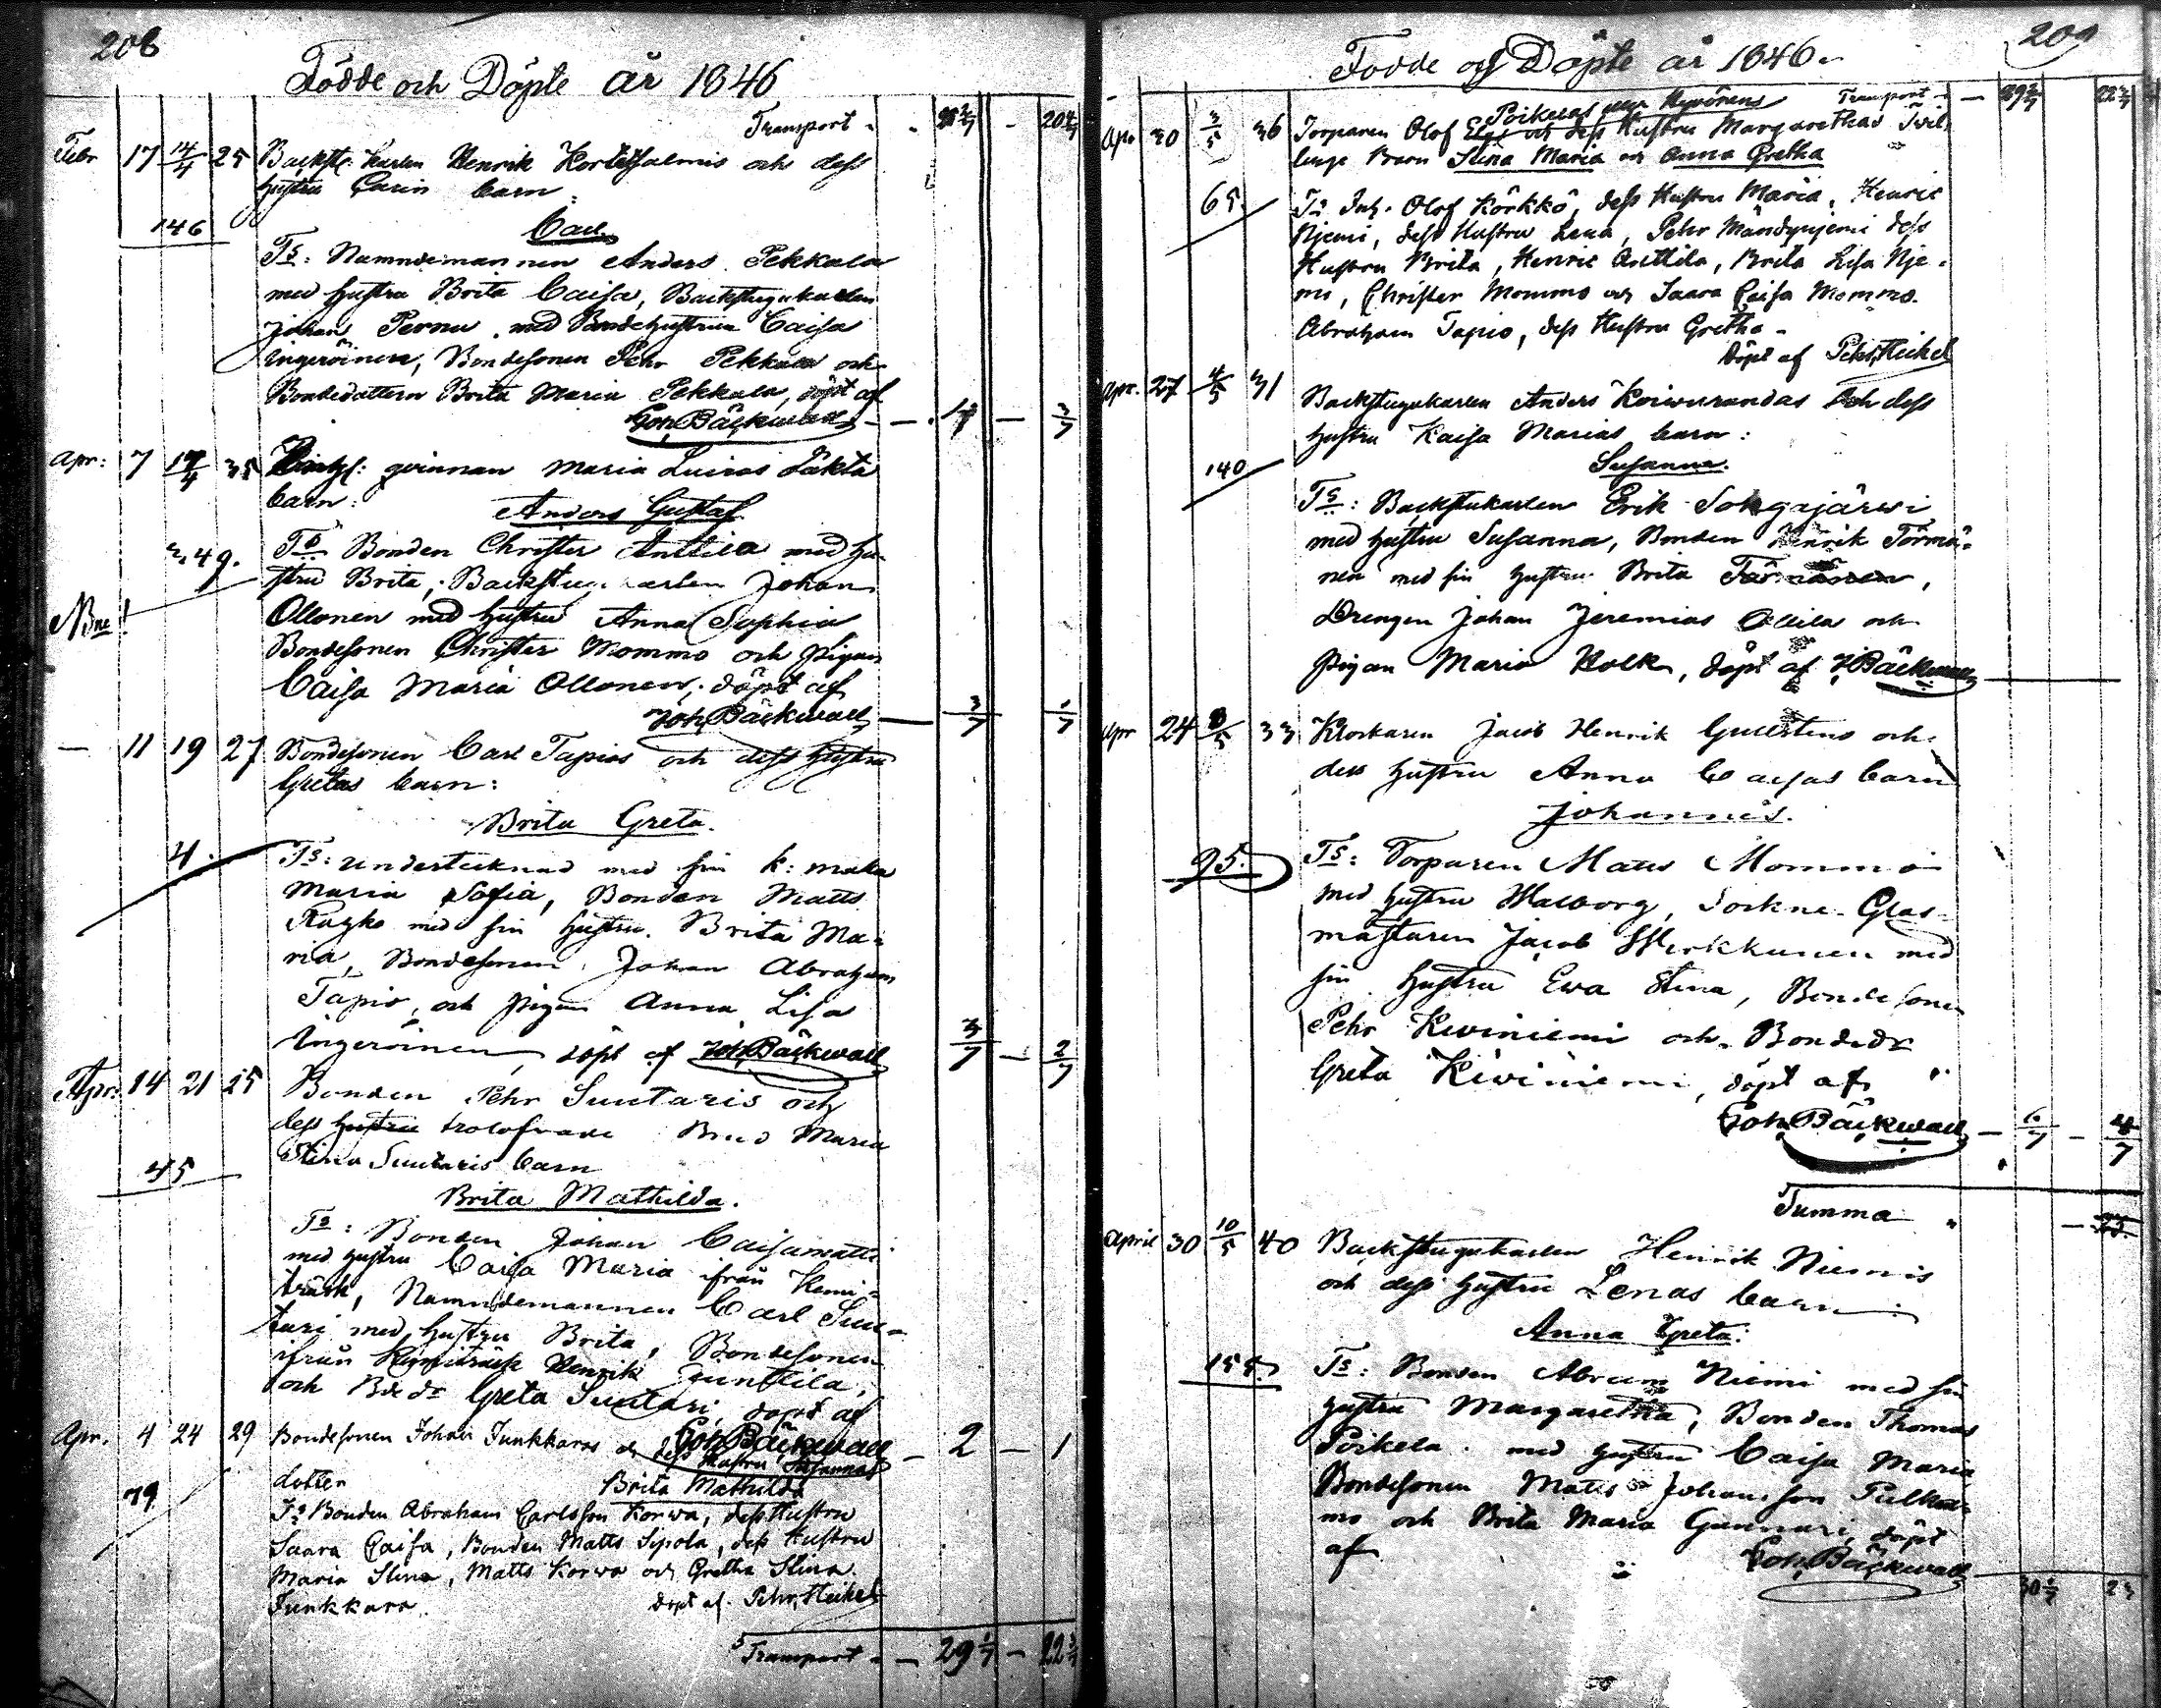 208
Födde och Döpte år 1846
Transport - 20 4/7
Febr 17 14/4 25 Backst: karlen Henrik Kortetsalmis och dess
hustru Carin barn:
146 Carl
Ts: Namndemannen Anders Pekkala
med hustru Brita Caisa, Backstugukarlen
Johan Pernu med Bondehustrun Caisa
Ingeröinen, Bondesonen Pehr Pekkala och
Bondedottern Brita Maria Pekkala, döpt af
Joh. Bäckwall - 3/7
Apr: 7 35 qvinnan Maria Luiras oäkta
barn: Anders Gustaf
249. Ts Bonden Christer Anttila med hu-
stru Brita, Backstugukarlen Johan
NB
Ollonen med hustru Anna Sophia
Bondesonen Christer Mommo och pigan
Caisa Maria Ollonen, döpt af
Joh. Bäckwall - 3/7 1/7
- 11 19 27 Bondesonen Carl Tapios och dess hustru
Gretas barn:
Brita Greta.
4. Ts: undertecknad med sin k: maka
Maria Sofia, Bonden Matts
med sin hustru Brita Ma-
ria, Bondesonen Johan Abraham
Tapio, och pigan Anna Lisa
Ingeröinen, döpt af Joh. Bäckwall 3/7 - 2/7
Apr: 14 21 25 Bonden Pehr Suutaris och
dess hustru trolofvade Brud Maria
Stina Suutaris barn
45
Brita Mathilda.
Ts: Bonden Johan Caisamatti
med hustru Caisa Maria från Kemi-
träsk, Namndemannen Carl Suu-
tari med hustru Brita, Bondesonen
ifrån Kemiträsk Henrik Junttila,
och Bde dr Greta Suutari, döpt af
Joh. Bäckwall - 2 - 1
Apr. 4 24 29 Bondesonen Johan Junkkaras och dess Hustru Susannas
dotter Brita Mathilda
79
Ts Bonden Abraham Carlsson Korwa, dess Hustru
Saara Caisa, Bonden Matts Sipola, dess Hustru
Maria Stina, Matts Korwa och Gretha Stina
Junkkara. döpt af Pehr Heikel
Transport - - 29 1/7 - 22 3/7
209
Födde och Döpte år 1846.
Poikelas Hyvönens Transport - - 29 22 3/7
Apr 30 3/5 36 Torparen Olof och dess Hustru Margarethas Tvil-
linge Barn Stina Maria och Anna Gretha
65 Ts Inh. Olof Körkkö, dess Hustru Maria, Henric
Njemi, dess Hustru Lena, Pehr Mändynjemi dess
Hustru Brita, Henric Anttila, Brita Lisa Nje-
mi, Christer Mommo och Saara Caisa Mommo.
Abraham Tapio, dess Hustru Gretha -
Döpt af Pehr Heikel
Apr. 27 4/5 31 Backstugukarlen Anders Koiwurandas och dess
hustru Kaisa Marias barn:
140 Susanna.
Ts: Backstukarlen Erik
med hustru Susanna, Bonden Henrik Törmä-
nen med sin hustru Brita Törmänen,
Drengen Johan Jeremias Ollila och
pigan Maria Kolk, döpt af J. Bäckwall
Apr 24 33 Klockaren Jacob Henrik Gullstens och
dess hustru Anna Caisas barn
Johannes.
95. Ts: Torparen Matts Mommo
med hustru Walborg, Sockne-Glas-
mästaren Jacob med
sin hustru Ewa Stina, Bondesonen
Pehr Kiviniemi och Bondedr
Greta Kiviniemi, döpt af
Joh. Bäckwall - 6/7 - 4/7
Summa
April 30 10/5 40 Backstugukarlen Henrik Niemis
och dess hustru Lenas barn:
Anna Greta:
155 Ts: Bonden Abram Niemi med sin
hustru Margaretha, Bonden Thomas
Poikela med hustru Caisa Maria
Bondesonen Matts Johansson Pulka-
mo och Brita Maria Gunnari, döpt
af Joh. Bäckwall
30 23